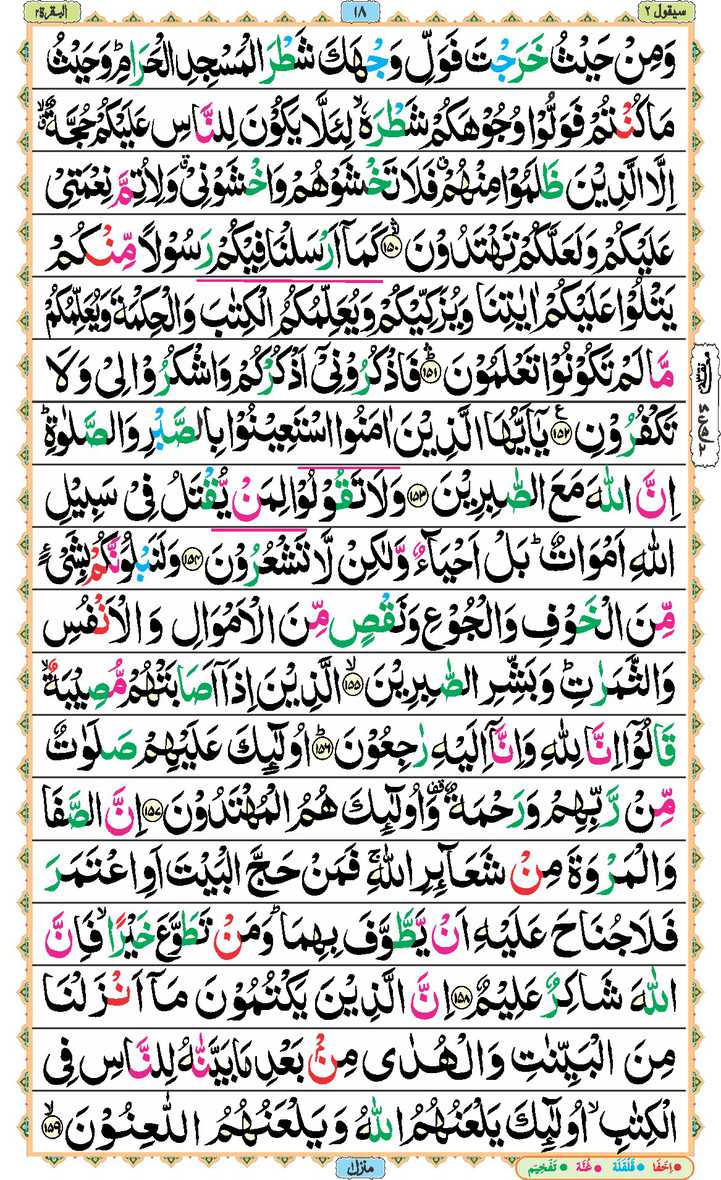 سيقول ٢
١٨
البقرة ٢
وَمِنْ حَيْثُ خَرَجْتَ فَوَلِّ وَجْهَكَ شَطْرَ الْمَسْجِدِ الْحَرَامِ ؕ وَحَيْثُ
مَا كُنْتُمْ فَوَلُّوْا وُجُوْهَكُمْ شَطْرَهٗ ۙ لِئَلَّا يَكُوْنَ لِلنَّاسِ عَلَيْكُمْ حُجَّةٌ ۙۗ
اِلَّا الَّذِيْنَ ظَلَمُوْا مِنْهُمْ ۗ فَلَا تَخْشَوْهُمْ وَاخْشَوْنِيْ ۗ وَلِاُتِمَّ نِعْمَتِيْ
عَلَيْكُمْ وَلَعَلَّكُمْ تَهْتَدُوْنَ ۛ۝۱۵۰ كَمَاۤ اَرْسَلْنَا فِيْكُمْ رَسُوْلًا مِّنْكُمْ
يَتْلُوْا عَلَيْكُمْ اٰيٰتِنَا وَيُزَكِّيْكُمْ وَيُعَلِّمُكُمُ الْكِتٰبَ وَالْحِكْمَةَ وَيُعَلِّمُكُمْ
مَّا لَمْ تَكُوْنُوْا تَعْلَمُوْنَ ؕۛ۝۱۵۱ فَاذْكُرُوْنِيْۤ اَذْكُرْكُمْ وَاشْكُرُوْا لِيْ وَلَا
تَكْفُرُوْنِ ۝۱۵۲ ع يٰۤاَيُّهَا الَّذِيْنَ اٰمَنُوا اسْتَعِيْنُوْا بِالصَّبْرِ وَالصَّلٰوةِ ؕ
اِنَّ اللّٰهَ مَعَ الصّٰبِرِيْنَ ۝۱۵۳ وَلَا تَقُوْلُوْا لِمَنْ يُّقْتَلُ فِيْ سَبِيْلِ
اللّٰهِ اَمْوَاتٌ ؕ بَلْ اَحْيَآءٌ وَّلٰكِنْ لَّا تَشْعُرُوْنَ ۝۱۵۴ وَلَنَبْلُوَنَّكُمْ بِشَيْءٍ
مِّنَ الْخَوْفِ وَالْجُوْعِ وَنَقْصٍ مِّنَ الْاَمْوَالِ وَالْاَنْفُسِ
وَالثَّمَرٰتِ ؕ وَبَشِّرِ الصّٰبِرِيْنَ ۙ۝۱۵۵ الَّذِيْنَ اِذَاۤ اَصَابَتْهُمْ مُّصِيْبَةٌ ۙ
قَالُوْۤا اِنَّا لِلّٰهِ وَاِنَّاۤ اِلَيْهِ رٰجِعُوْنَ ؕ۝۱۵۶ اُولٰٓئِكَ عَلَيْهِمْ صَلَوٰتٌ
مِّنْ رَّبِّهِمْ وَرَحْمَةٌ ۟ وَاُولٰٓئِكَ هُمُ الْمُهْتَدُوْنَ ۝۱۵۷ اِنَّ الصَّفَا
وَالْمَرْوَةَ مِنْ شَعَآئِرِ اللّٰهِ ۚ فَمَنْ حَجَّ الْبَيْتَ اَوِ اعْتَمَرَ
فَلَا جُنَاحَ عَلَيْهِ اَنْ يَّطَّوَّفَ بِهِمَا ؕ وَمَنْ تَطَوَّعَ خَيْرًا ۙ فَاِنَّ
اللّٰهَ شَاكِرٌ عَلِيْمٌ ۝۱۵۸ اِنَّ الَّذِيْنَ يَكْتُمُوْنَ مَاۤ اَنْزَلْنَا
مِنَ الْبَيِّنٰتِ وَالْهُدٰى مِنْۢ بَعْدِ مَا بَيَّنّٰهُ لِلنَّاسِ فِي
الْكِتٰبِ ۙ اُولٰٓئِكَ يَلْعَنُهُمُ اللّٰهُ وَيَلْعَنُهُمُ اللّٰعِنُوْنَ ۙ۝۱۵۹
منزل
اِخفَا قَلقَلَه غُنَّه تَفخِيم